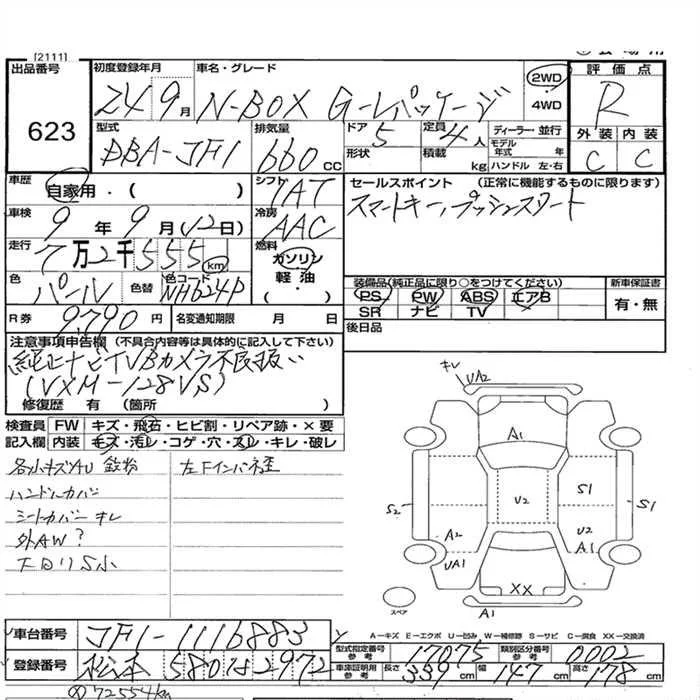 [2111]
出品番号
623
初度登録年月
24 9月
車名・グレード
N-BOX G-Lパッケージ
2WD
4WD
評価点
R
外装 内装
C C
型式
DBA-JF1
排気量
660 CC
ドア 5
形状
定員 4人
積載 kg
ディーラー・並行
モデル年式 年
ハンドル 左・右
車歴
自家用・( )
シフト
IAT
セールスポイント (正常に機能するものに限ります)
スマートキー、プッシュスタート
車検
9年9月12日
冷房
AAC
走行
7万2千555km
燃料
ガソリン
軽油
・( )
色
パール
色替
色コード
NH624P
装備品(純正品に限り○をつけてください)
PS PW ABS エアB
SR ナビ TV
新車保証書
有・無
R券
9790円
名変通知期限 月 日
後日品
注意事項申告欄 (不具合内容等は具体的に記入して下さい)
純正ナビTVBカメラ不良扱い
(VXM-128VS)
修復歴 有 (箇所 )
検査員記入欄
FW キズ・飛石・ヒビ割・リペア跡・×要
内装 キズ・汚レ・コゲ・穴・スレ・キレ・破レ
各小キズAU 鉄粉
ハンドルカバー
シートカバー キレ
外AW?
下回りS小
左Fインパネ歪
キレ
UA2
A1
S2
U2
S1
S1
A2
UA1
U2
A1
XX
A1
スペア
A-キズ E-エクボ U-凹み W-補修跡 S-サビ C-腐食 XX-交換済
車台番号
JF1-1116883
型式指定番号 参考
17075
類別区分番号 参考
0002
登録番号
松本 580 は 2972
車庫証明用 参考
長さ 339cm
幅 147cm
高さ 178cm
72554km